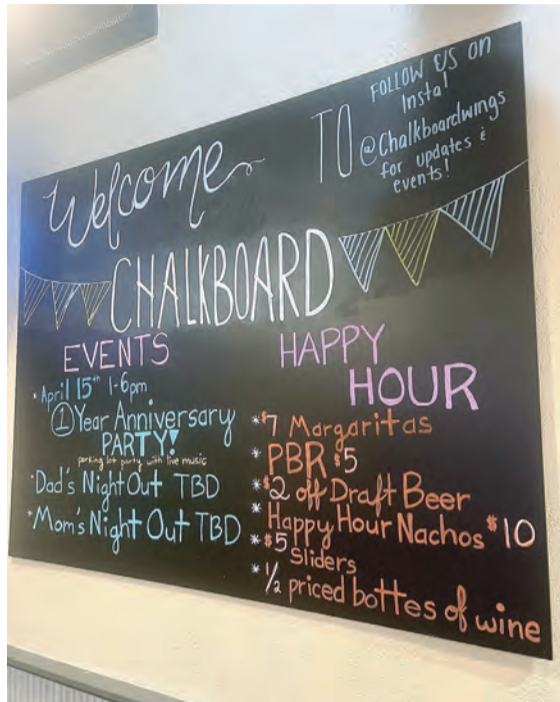 Welcome TO
FOLLOW US ON
Insta!
@Chalkboardwings
for updates &
events!
CHALKBOARD
EVENTS
• April 15th 1-6pm
1 Year Anniversary
PARTY!
parking lot party with live music
• Dad's Night Out TBD
• Mom's Night Out TBD
HAPPY
HOUR
* $7 Margaritas
* PBR $5
* $2 off Draft Beer
* Happy Hour Nachos $10
* $5 Sliders
* 1/2 priced bottes of wine